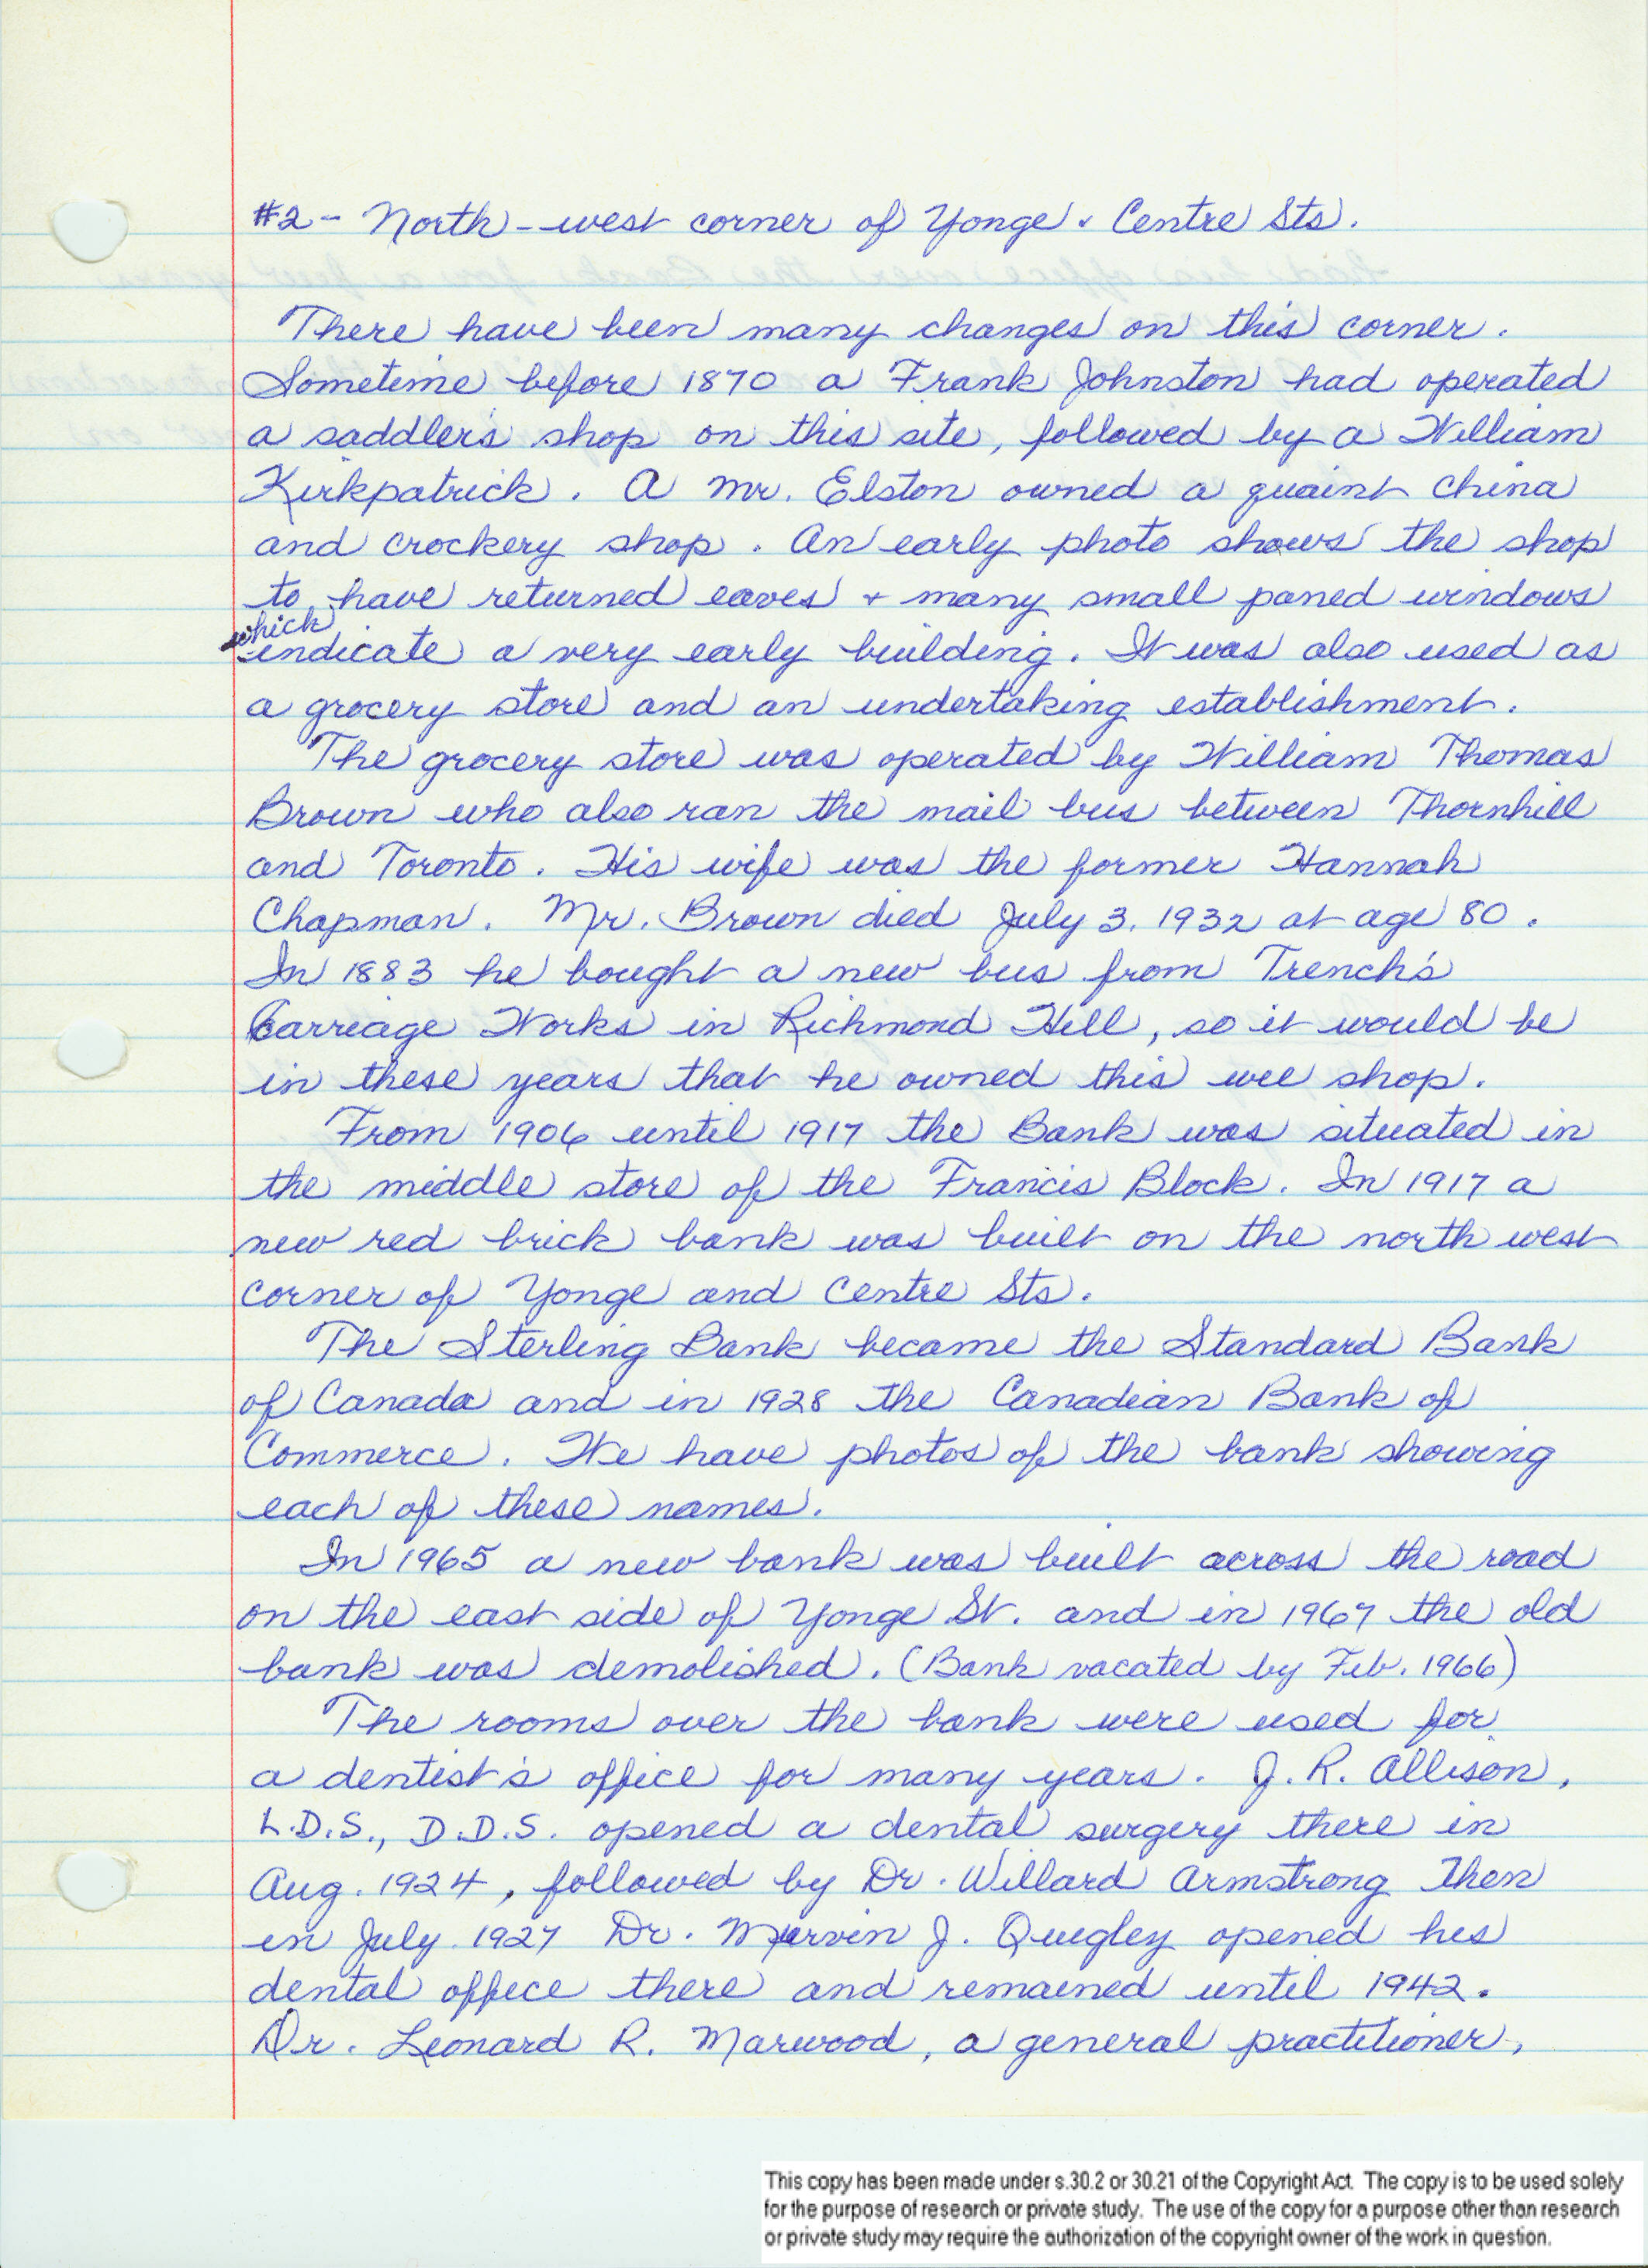 #2 - North-west corner of Yonge & Centre Sts.
There have been many changes on this corner.
Sometime before 1870 a Frank Johnston had operated
a saddler's shop on this site, followed by a William
Kirkpatrick. A Mr. Elston owned a quaint china
and crockery shop. An early photo shows the shop
to have returned eaves & many small paned windows
which
indicate a very early building. It was also used as
a grocery store and an undertaking establishment.
The grocery store was operated by William Thomas
Brown who also ran the mail bus between Thornhill
and Toronto. His wife was the former Hannah
Chapman. Mr. Brown died July 3, 1932 at age 80.
In 1883 he bought a new bus from Trench's
Carriage Works in Richmond Hill, so it would be
in these years that he owned this wee shop.
From 1906 until 1917 the Bank was situated in
the middle store of the Francis Block. In 1917 a
new red brick bank was built on the north west
corner of Yonge and Centre Sts.
The Sterling Bank became the Standard Bank
of Canada and in 1928 the Canadian Bank of
Commerce. We have photos of the bank showing
each of these names.
In 1965 a new bank was built across the road
on the east side of Yonge St. and in 1967 the old
bank was demolished. (Bank vacated by Feb. 1966)
The rooms over the bank were used for
a dentist's office for many years. J. R. Allison,
L.D.S., D.D.S. opened a dental surgery there in
Aug. 1924, followed by Dr. Willard Armstrong Then
in July 1927 Dr. Mervin J. Quigley opened his
dental office there and remained until 1942.
Dr. Leonard R. Marwood, a general practitioner,
This copy has been made under s.30.2 or 30.21 of the Copyright Act. The copy is to be used solely
for the purpose of research or private study. The use of the copy for a purpose other than research
or private study may require the authorization of the copyright owner of the work in question.